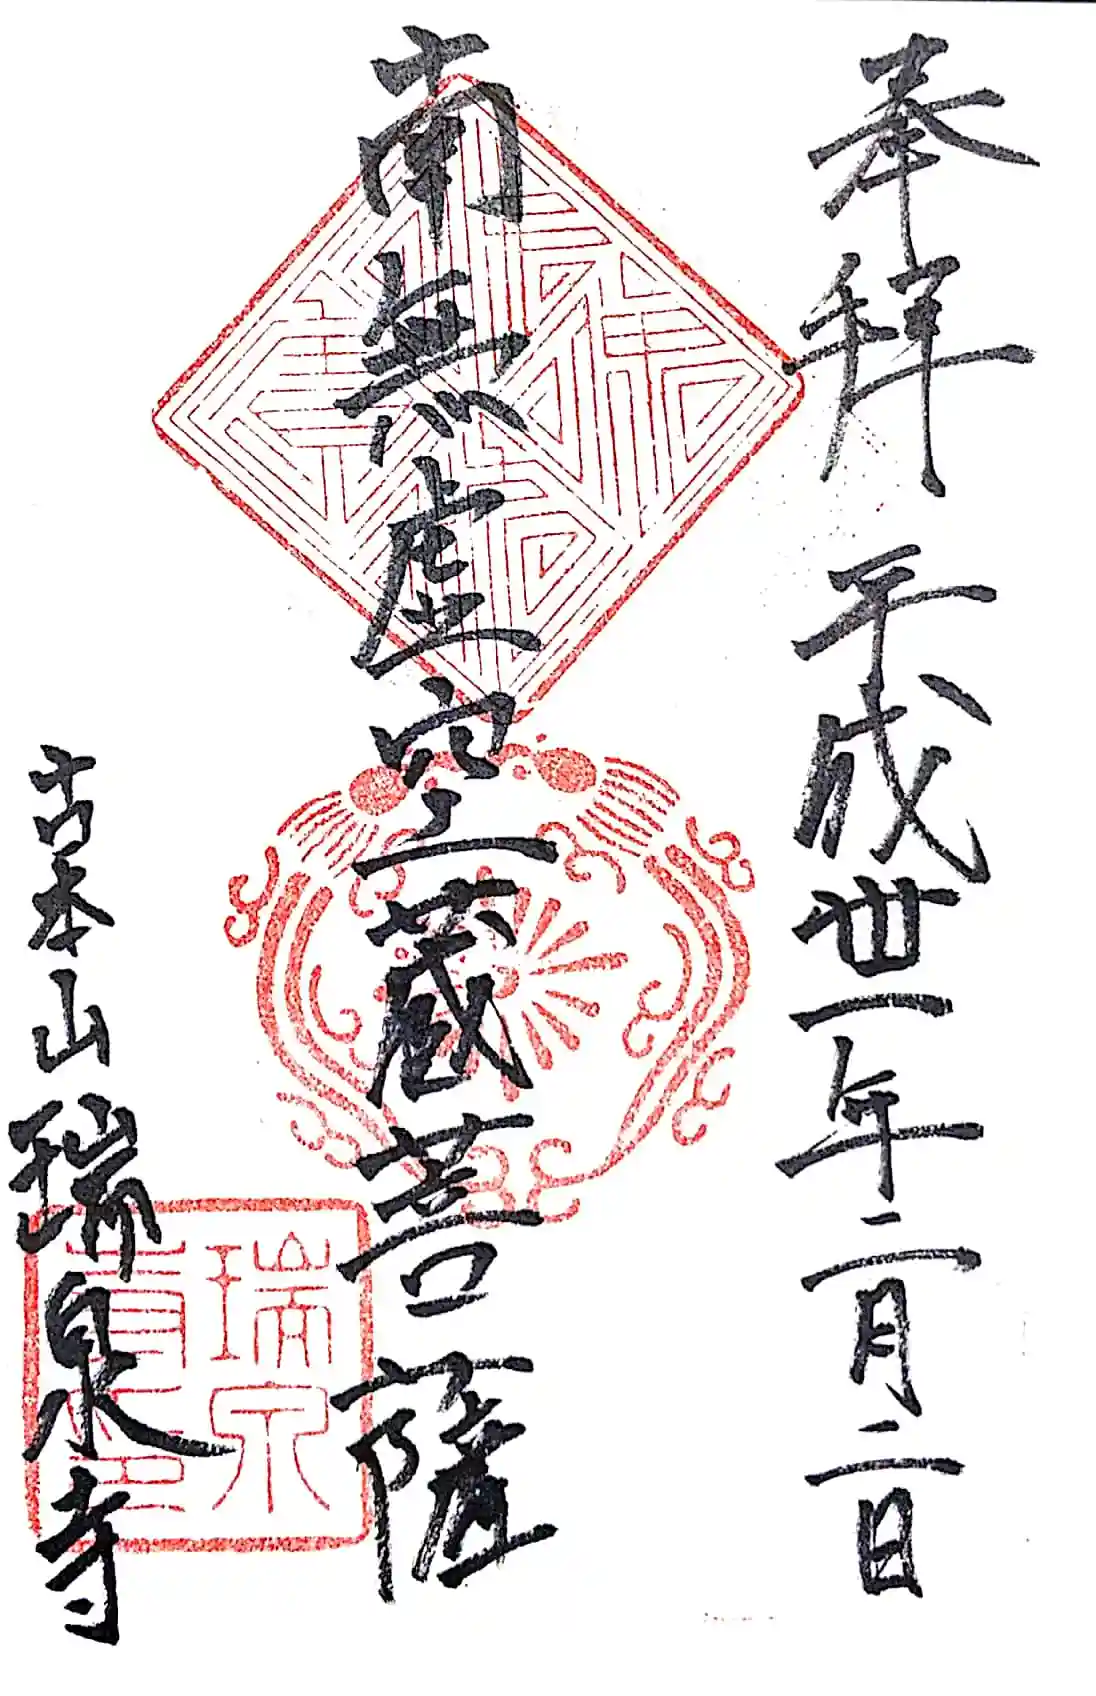 奉拝 平成丗一年二月二日
南無虚空蔵菩薩
古木山 瑞泉寺
瑞泉